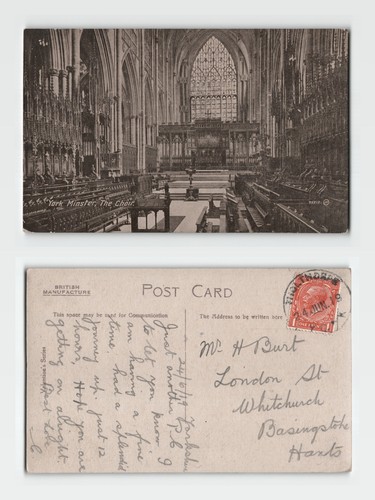 York Minster, The Choir.
BRITISH
MANUFACTURE
POST CARD
This space may be used for Communication
The Address to be written here
24/6/19 Yorkshire
Just another P.C
to let you know I
am having a fine
time. had a splendid
journey up. just 12
hours, Hope you are
getting on alright.
Best Love
Mr H Burt
London St
Whitchurch
Basingstoke
Hants